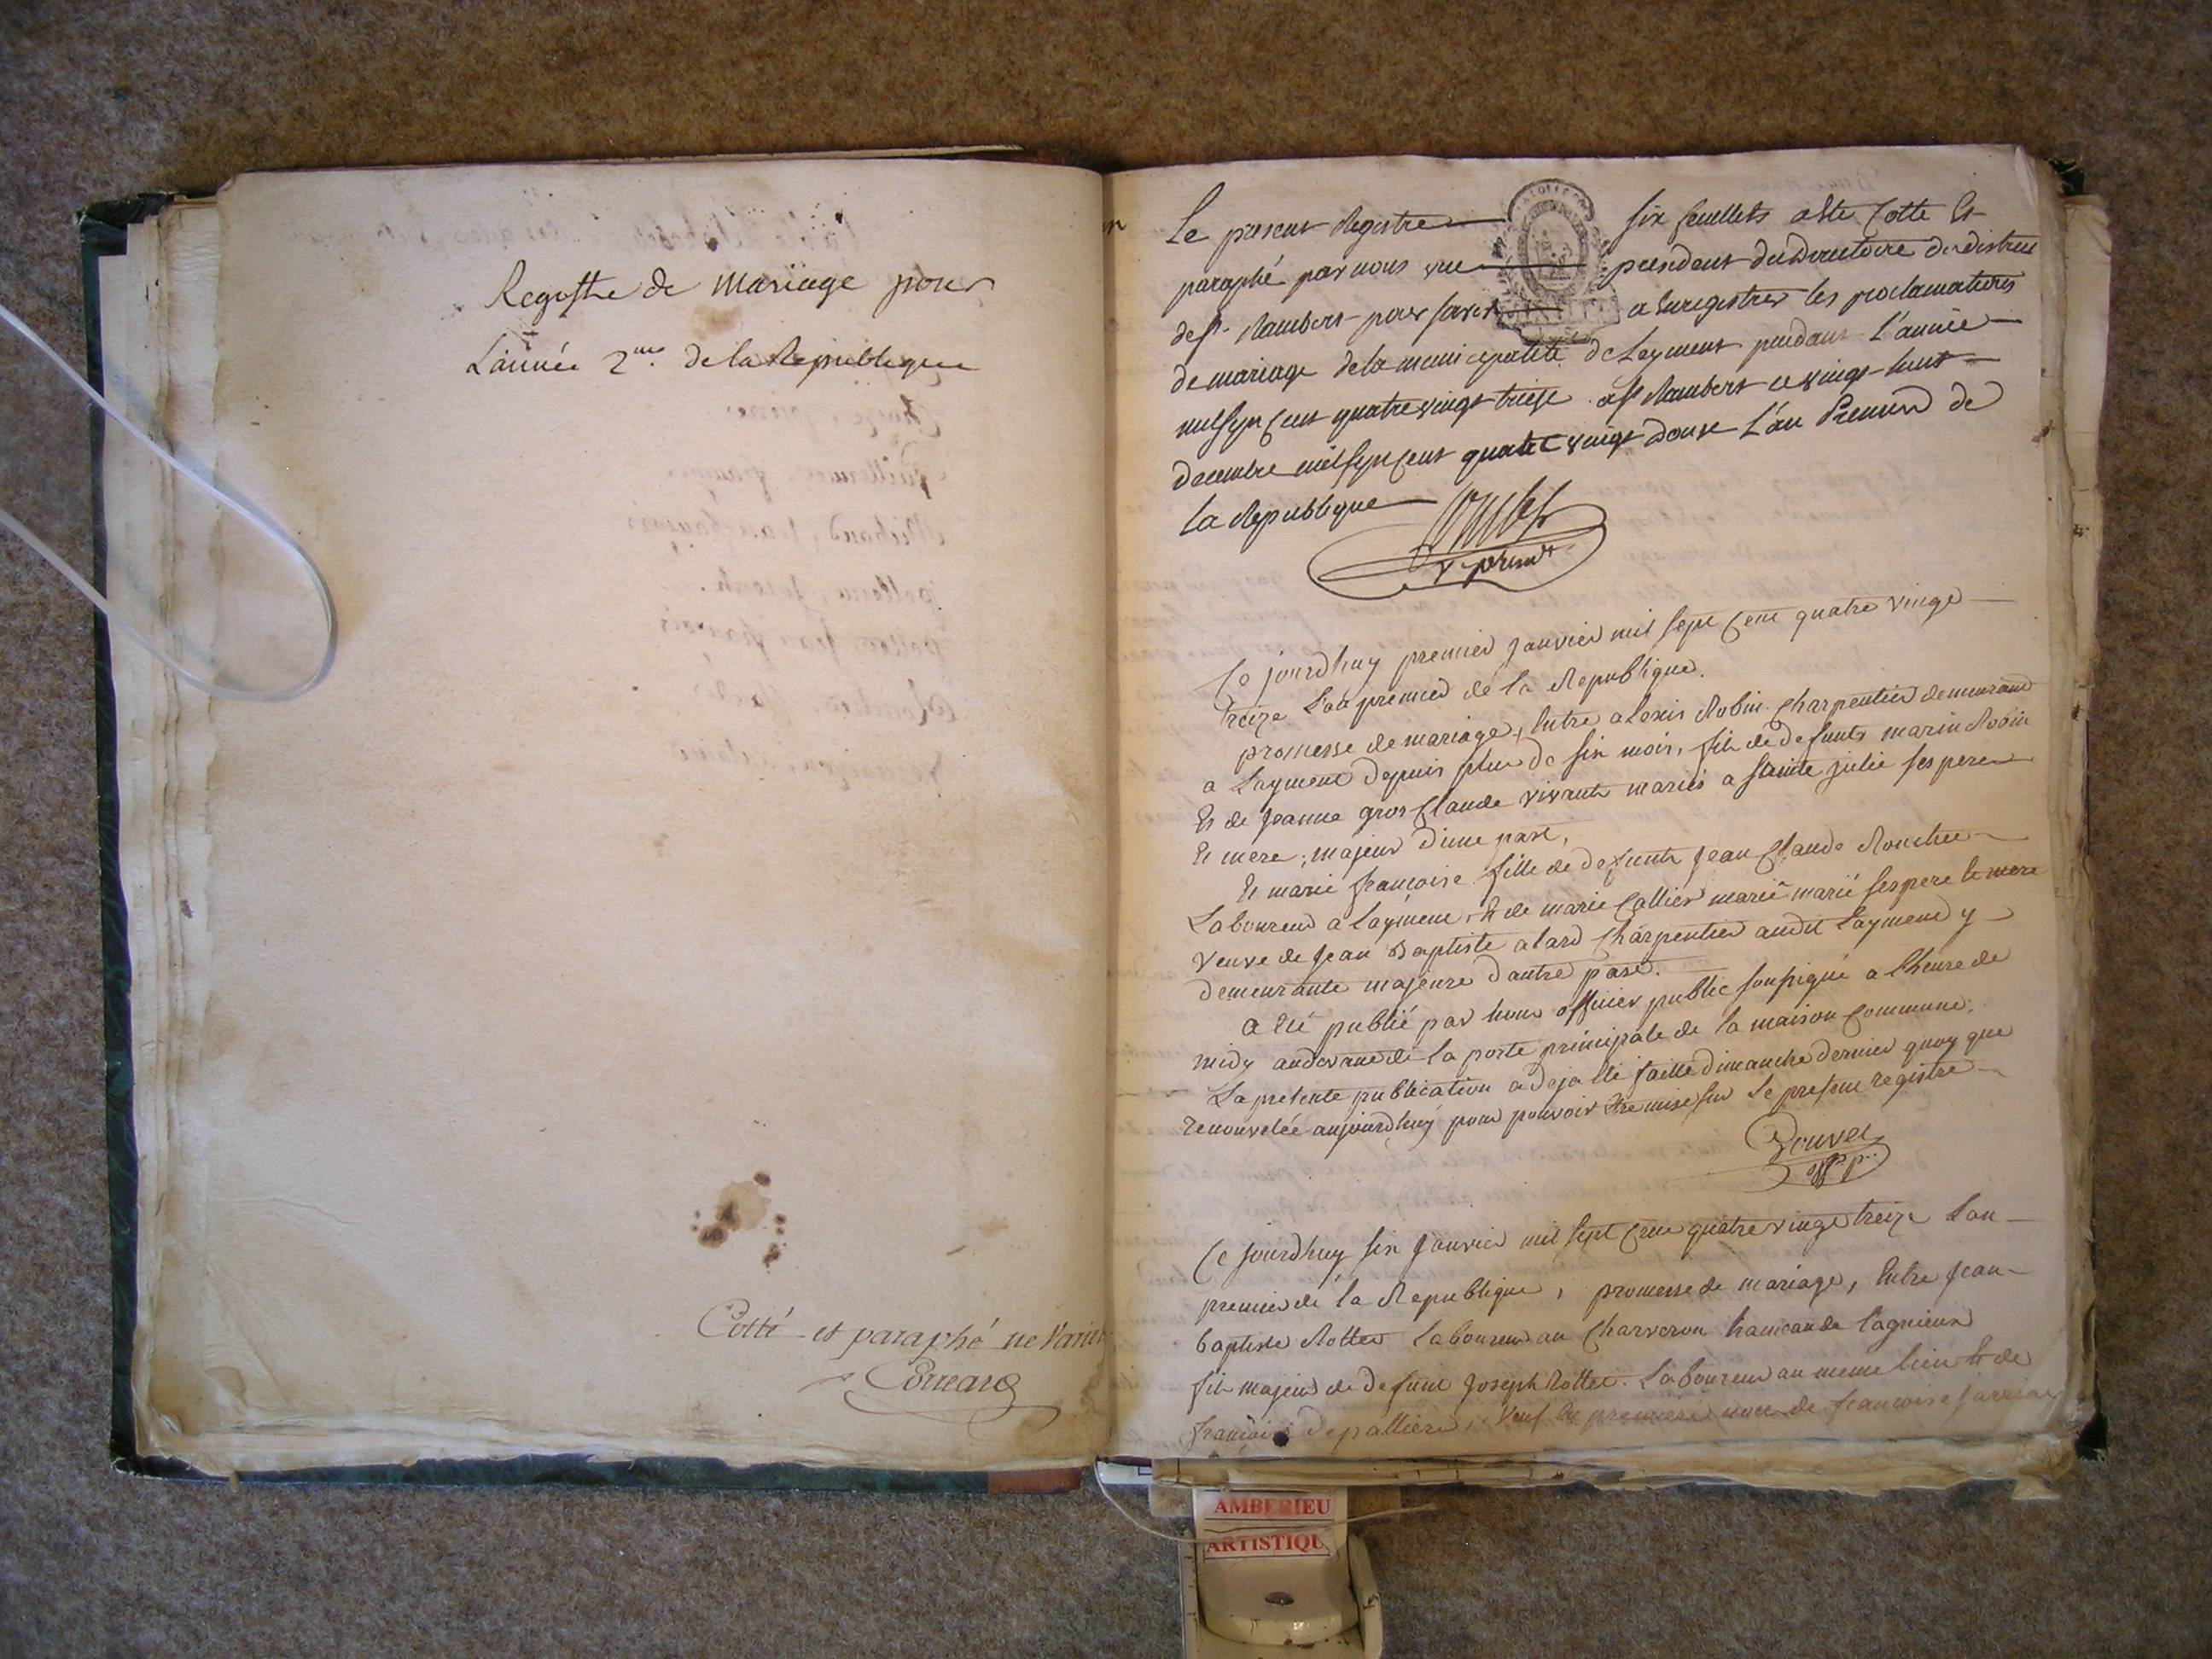 Regystre de Mariage pour
L'année 2me. de la Republique
Cotté et paraphé ne Variet
Le present Registre six feuillets a été Cotté Et
paraphé par nous vice president du Directoire du district
de st. Rambert pour servir a Enregistrer les proclamations
de mariage de la municipalité de Leyment pendant L'année
mil sept Cent quatre vingt treize a st Rambert ce vingt huit
decembre mil sept Cent quatre vingt douse L'an Premier de
la Republique
v. presidt
Ce jourdhuy premier Janvier mil sept Cent quatre vingt
treize L'an premier de la Republique.
promesse de mariage, Entre alexis Robin Charpentier demeurand
a Layment depuis plus de six mois, fils de defunts marin Robin
Et de Jeanne gros Claude vivants mariés a Sainte julie ses pere
Et mere, majeur d'une part,
Et marie françoise fille de defunts Jean Claude
Laboureur a Layment, Et de marie Callier marié ses pere Et mere
veuve de Jean Baptiste alard Charpentier audit Layment y
demeurante majeure d'autre part.
a été publié par nous officier public soussigné a l'heure de
midy audevant de la porte principale de la maison Commune.
La presente publication a deja été faitte dimanche dernier quoy que
renouvelée aujourdhuy pour pouvoir Etre mise sur le present registre
Bouvet
off. p.
Ce jourdhuy six Janvier mil sept Cent quatre vingt treize L'an
premier de la Republique, promesse de mariage, Entre Jean
baptiste Rottet Laboureur au Charveron hameau de Lagnieux
fils majeur de defunt Joseph Rottet Laboureur au meme lieu Et de
françoise depalliere, veuf En premiere noce de francoise
AMBERIEU
ARTISTIQU